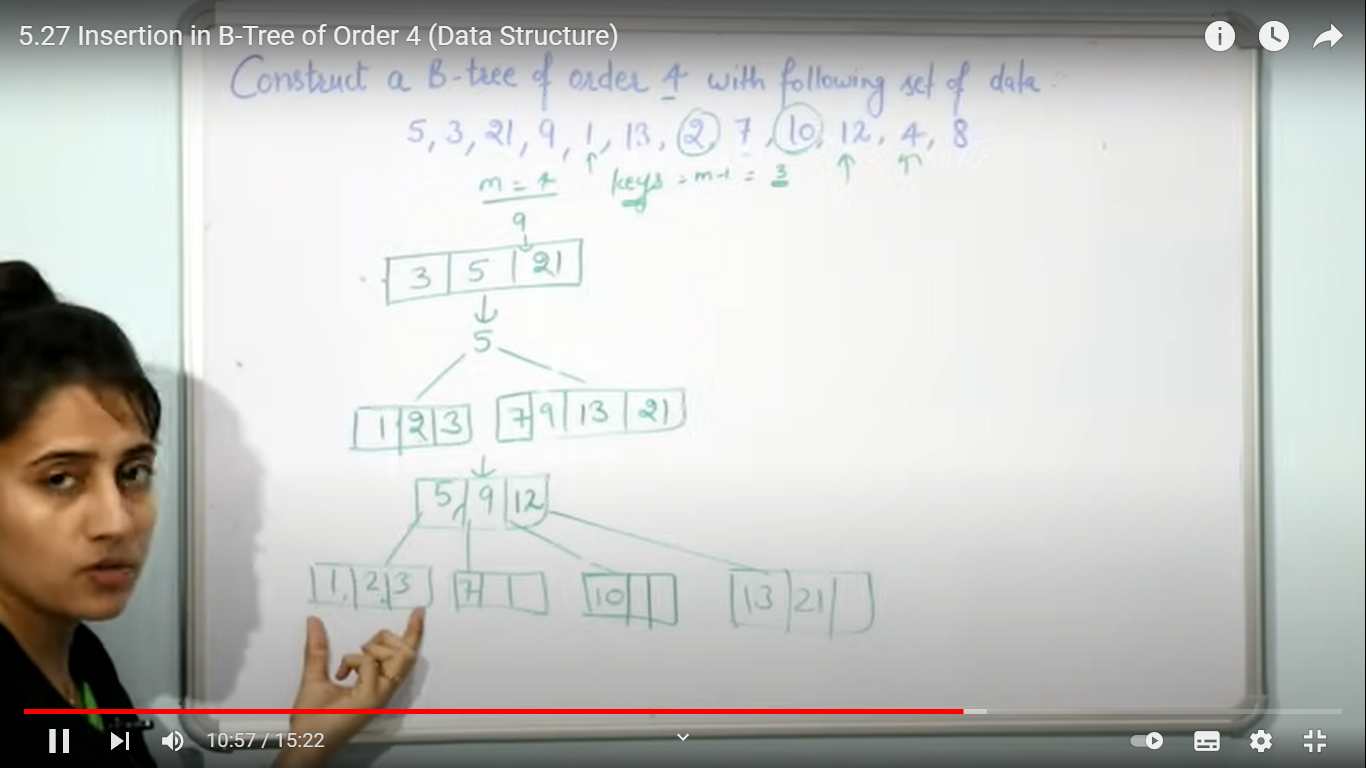 5.27 Insertion in B-Tree of Order 4 (Data Structure)
Construct a B-tree of order 4 with following set of data :-
5, 3, 21, 9, 1, 13, 2, 7, 10, 12, 4, 8
m = 4 keys = m-1 = 3
9
3 5 21
5
1 2 3 7 9 13 21
5, 9 12
1, 2, 3 7 10 13 21
10:57 / 15:22